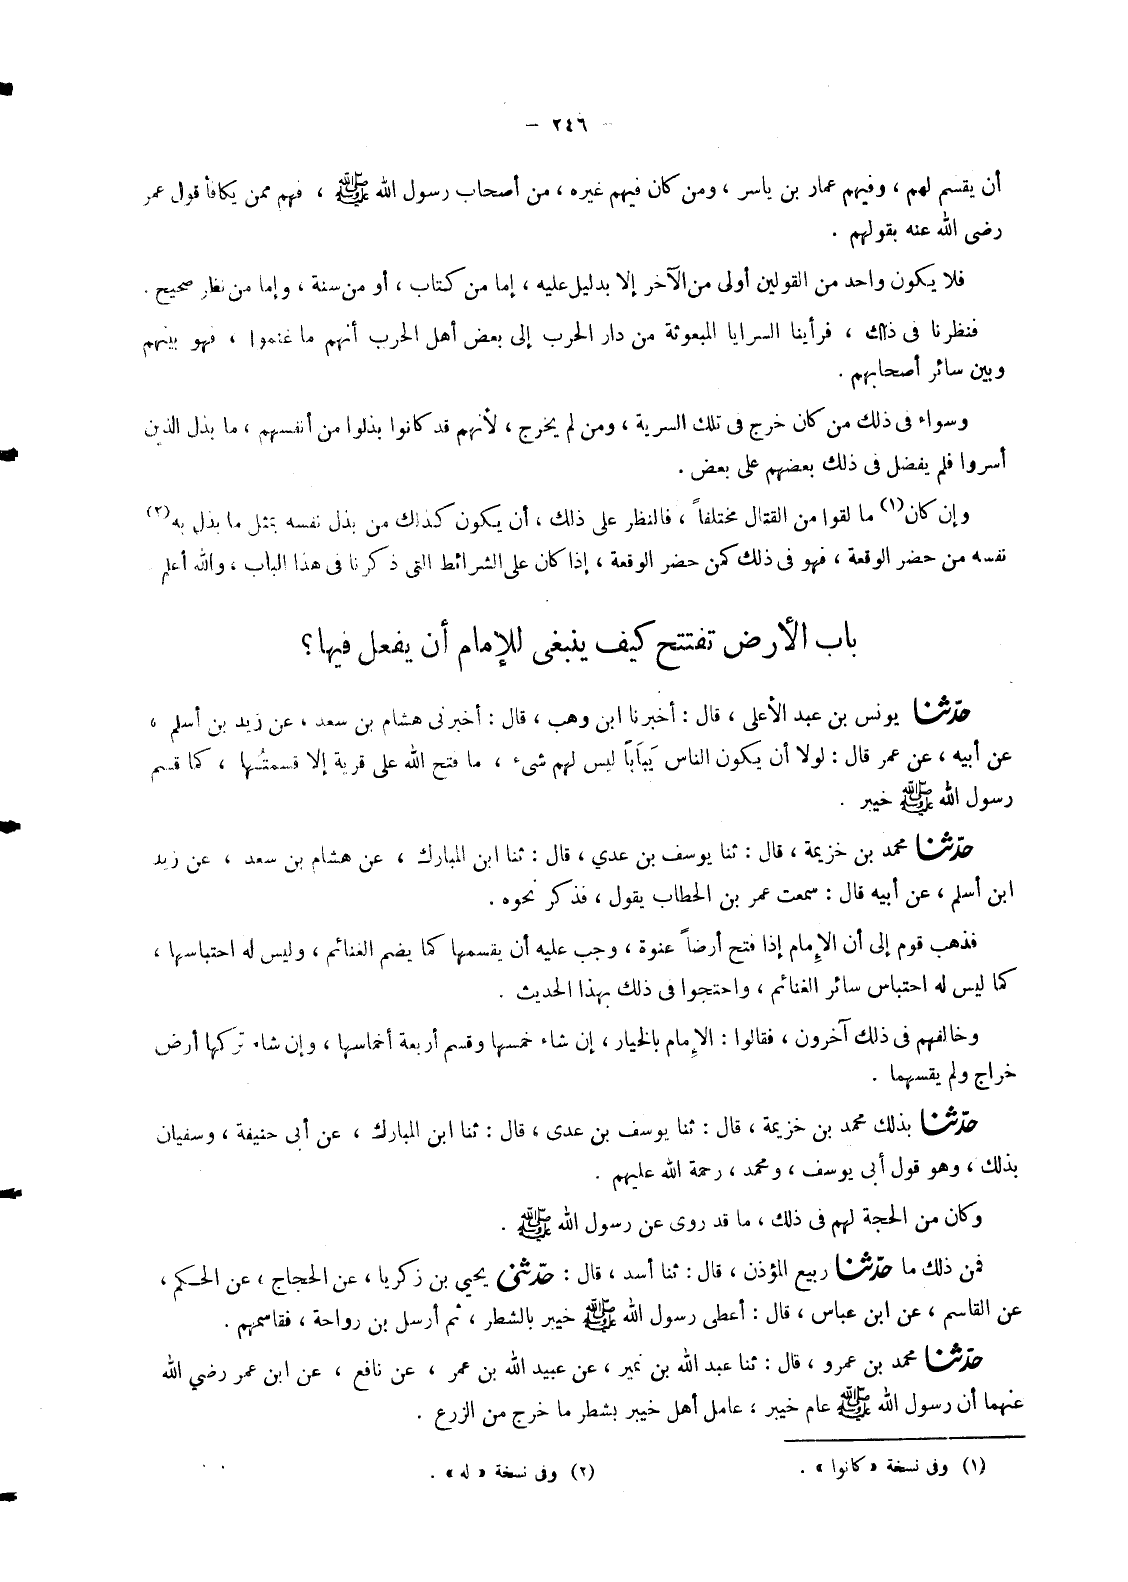 — ٢٤٦ —
أن يقسم لهم ، وفيهم عمار بن ياسر ، ومن كان فيهم غيره ، من أصحاب رسول الله ﷺ ، فهم ممن يكافأ قول عمر
رضى الله عنه بقولهم .
فلا يكون واحد من القولين أولى من الآخر إلا بدليل عليه ، إما من كتاب ، أو من سنة ، وإما من نظر صحيح .
فنظرنا فى ذلك ، فرأينا السرايا المبعوثة من دار الحرب إلى بعض أهل الحرب أنهم ما غنموا ، فهو بينهم
وبين سائر أصحابهم .
وسواء فى ذلك من كان خرج فى تلك السرية ، ومن لم يخرج ، لأنهم قد كانوا بذلوا من أنفسهم ، ما بذل الذين
أسروا فلم يفضل فى ذلك بعضهم على بعض .
وإن كان(١) ما لقوا من القتال مختلفاً ، فالنظر على ذلك ، أن يكون كذلك من بذل نفسه بمثل ما بذل به(٢)
نفسه من حضر الوقعة ، فهو فى ذلك كمن حضر الوقعة ، إذا كان على الشرائط التى ذكرنا فى هذا الباب ، والله أعلم
باب الأرض تفتتح كيف ينبغى للإمام أن يفعل فيها؟
حدّثنا يونس بن عبد الأعلى ، قال : أخبرنا ابن وهب ، قال : أخبرنى هشام بن سعد ، عن زيد بن أسلم ،
عن أبيه ، عن عمر قال : لولا أن يكون الناس يَبَاباً ليس لهم شىء ، ما فتح الله على قرية إلا قسمتُها ، كما قسم
رسول الله ﷺ خيبر .
حدّثنا محمد بن خزيمة ، قال : ثنا يوسف بن عدي ، قال : ثنا ابن المبارك ، عن هشام بن سعد ، عن زيد
ابن أسلم ، عن أبيه قال : سمعت عمر بن الخطاب يقول ، فذكر نحوه .
فذهب قوم إلى أن الإمام إذا فتح أرضاً عنوة ، وجب عليه أن يقسمها كما يضم الغنائم ، وليس له احتباسها ،
كما ليس له احتباس سائر الغنائم ، واحتجوا فى ذلك بهذا الحديث .
وخالفهم فى ذلك آخرون ، فقالوا : الإمام بالخيار ، إن شاء خمسها وقسم أربعة أخماسها ، وإن شاء تركها أرض
خراج ولم يقسهما .
حدّثنا بذلك محمد بن خزيمة ، قال : ثنا يوسف بن عدى ، قال : ثنا ابن المبارك ، عن أبى حنيفة ، وسفيان
بذلك ، وهو قول أبى يوسف ، ومحمد ، رحمة الله عليهم .
وكان من الحجة لهم فى ذلك ، ما قد روى عن رسول الله ﷺ .
فمن ذلك ما حدّثنا ربيع المؤذن ، قال : ثنا أسد ، قال : حدّثنى يحيى بن زكريا ، عن الحجاج ، عن الحكم ،
عن القاسم ، عن ابن عباس ، قال : أعطى رسول الله ﷺ خيبر بالشطر ، ثم أرسل بن رواحة ، فقاسمهم .
حدّثنا محمد بن عمرو ، قال : ثنا عبد الله بن نمير ، عن عبيد الله بن عمر ، عن نافع ، عن ابن عمر رضي الله
عنهما أن رسول الله ﷺ عام خيبر ، عامل أهل خيبر بشطر ما خرج من الزرع .
(١) وفى نسخة « كانوا » . (٢) وفى نسخة « له » .